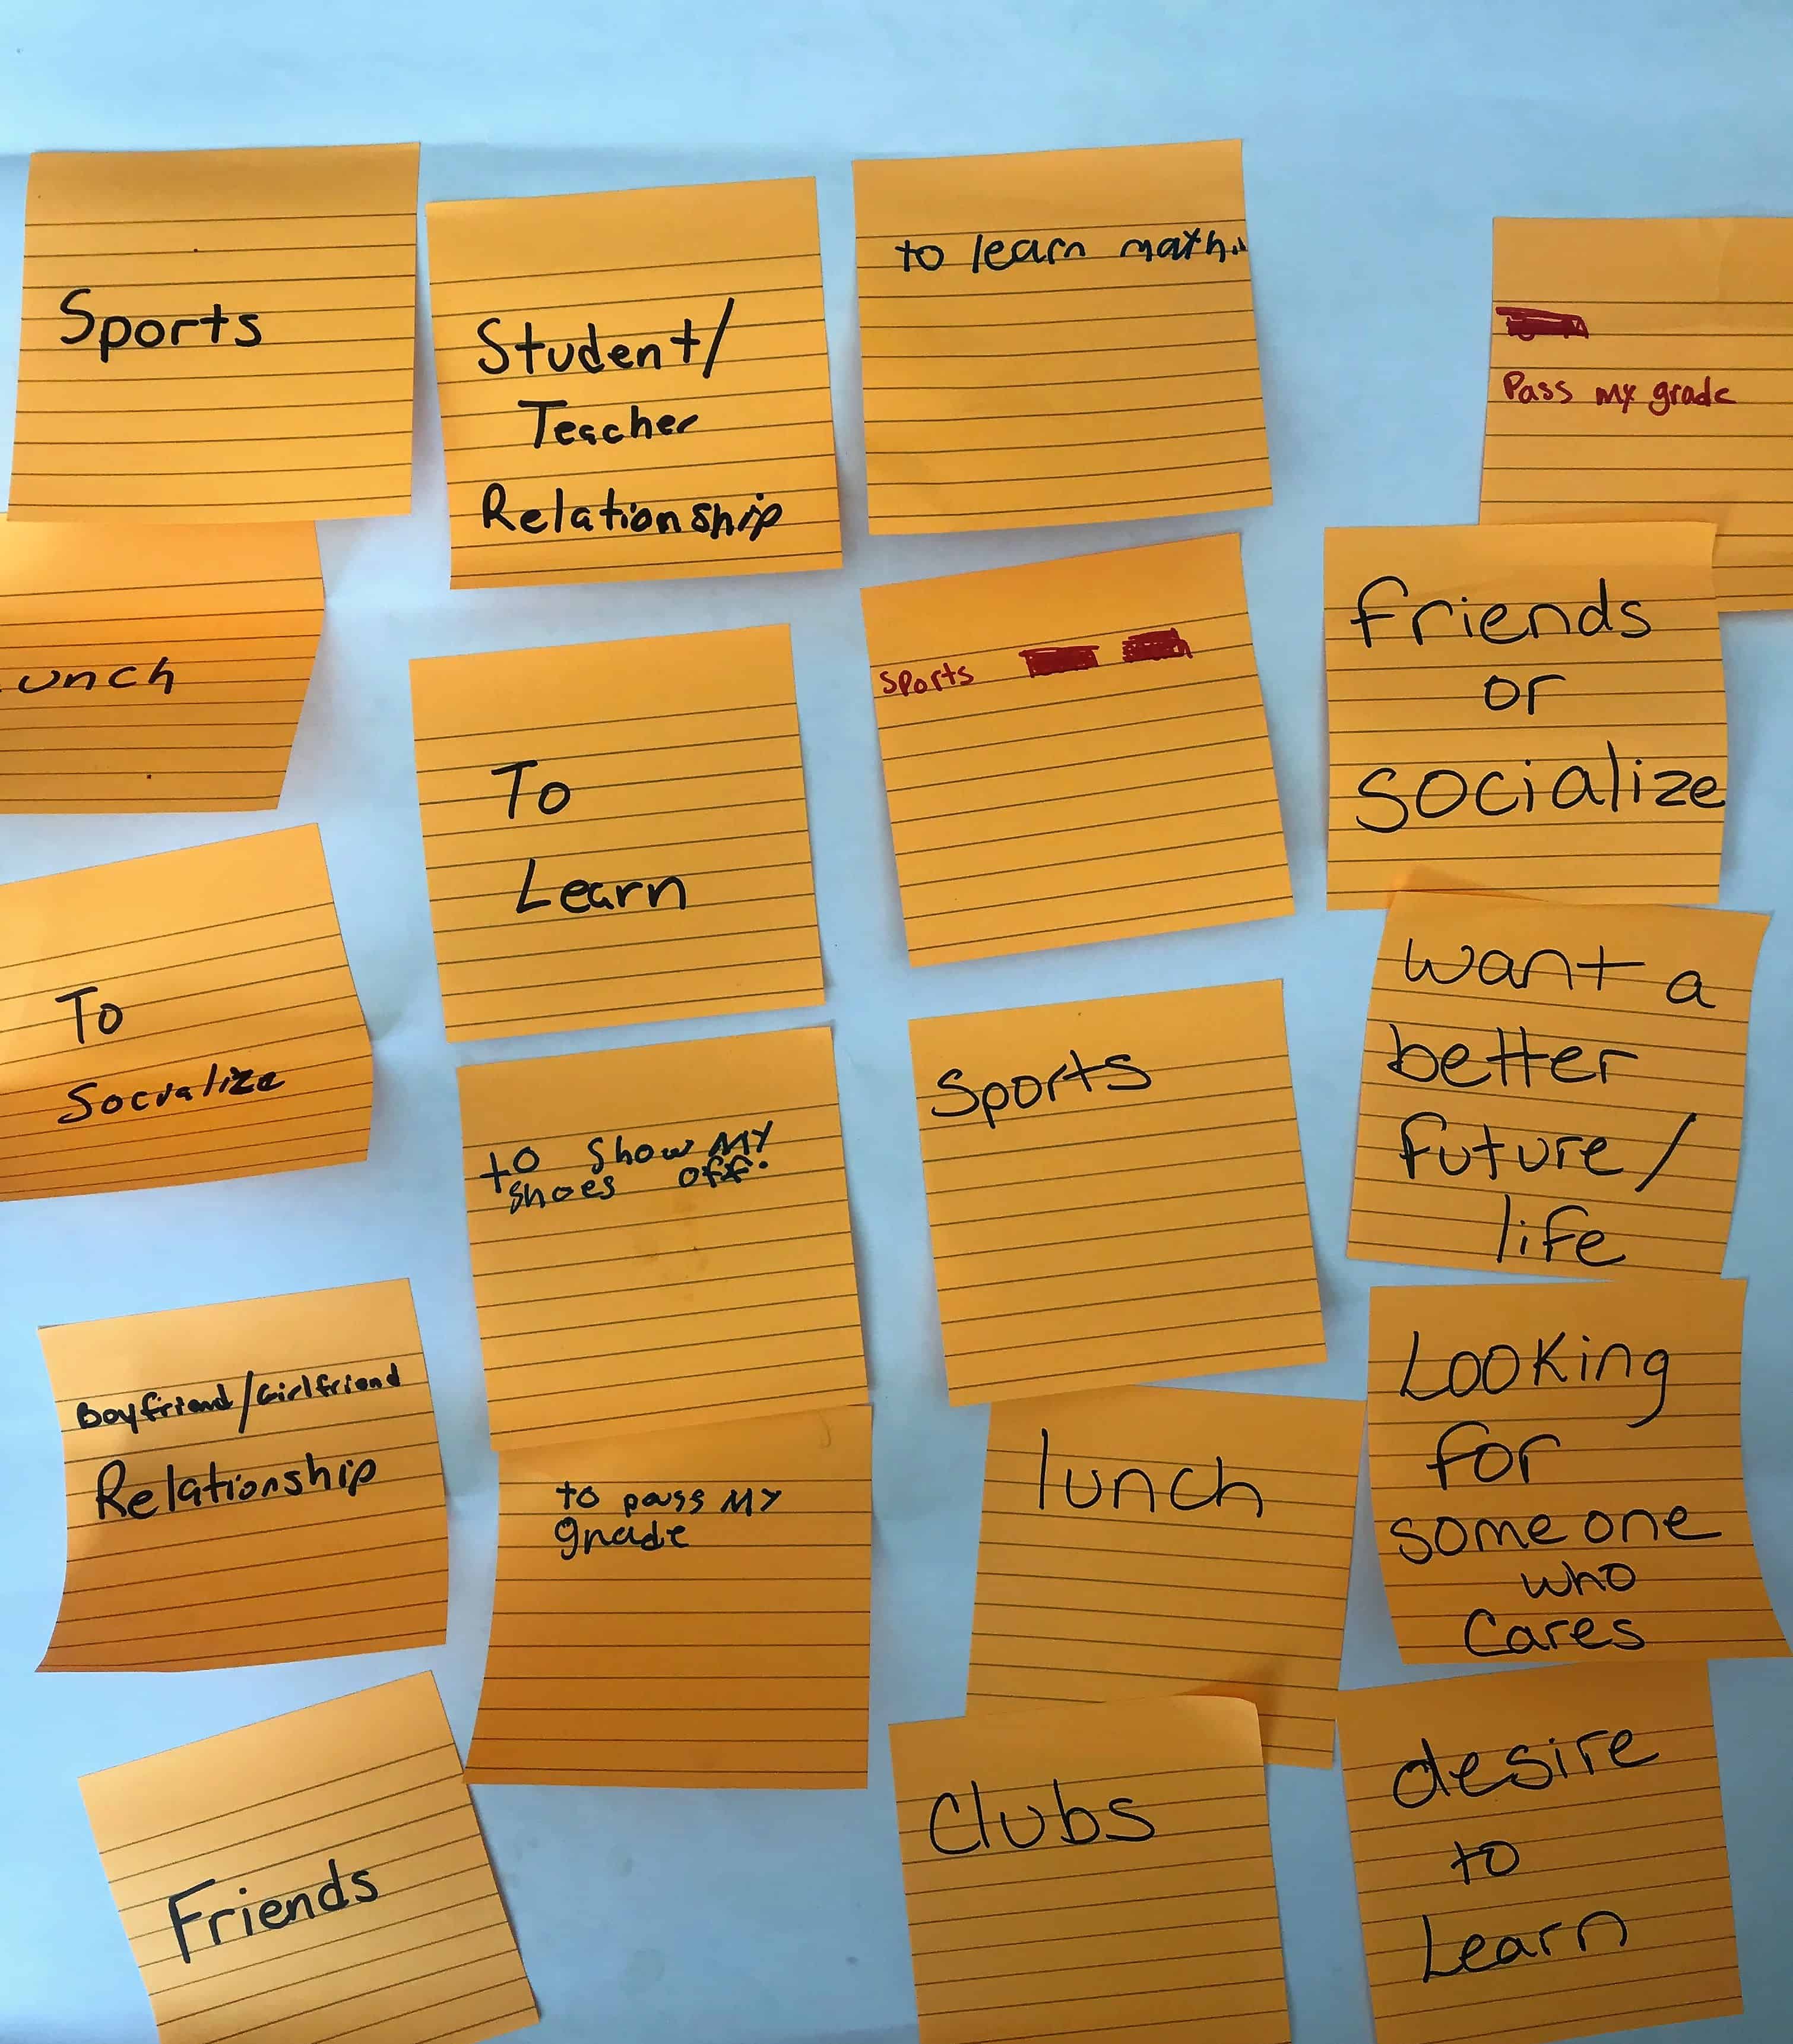 Sports
Student/
Teacher
Relationship
to learn math.
Pass my grade
unch
To
Learn
Sports
friends
or
socialize
To
Socialize
to show MY
shoes off.
Sports
want a
better
future/
life
Boyfriend/Girlfriend
Relationship
to pass MY
grade
lunch
Looking
for
someone
who
Cares
Friends
Clubs
desire
to
Learn